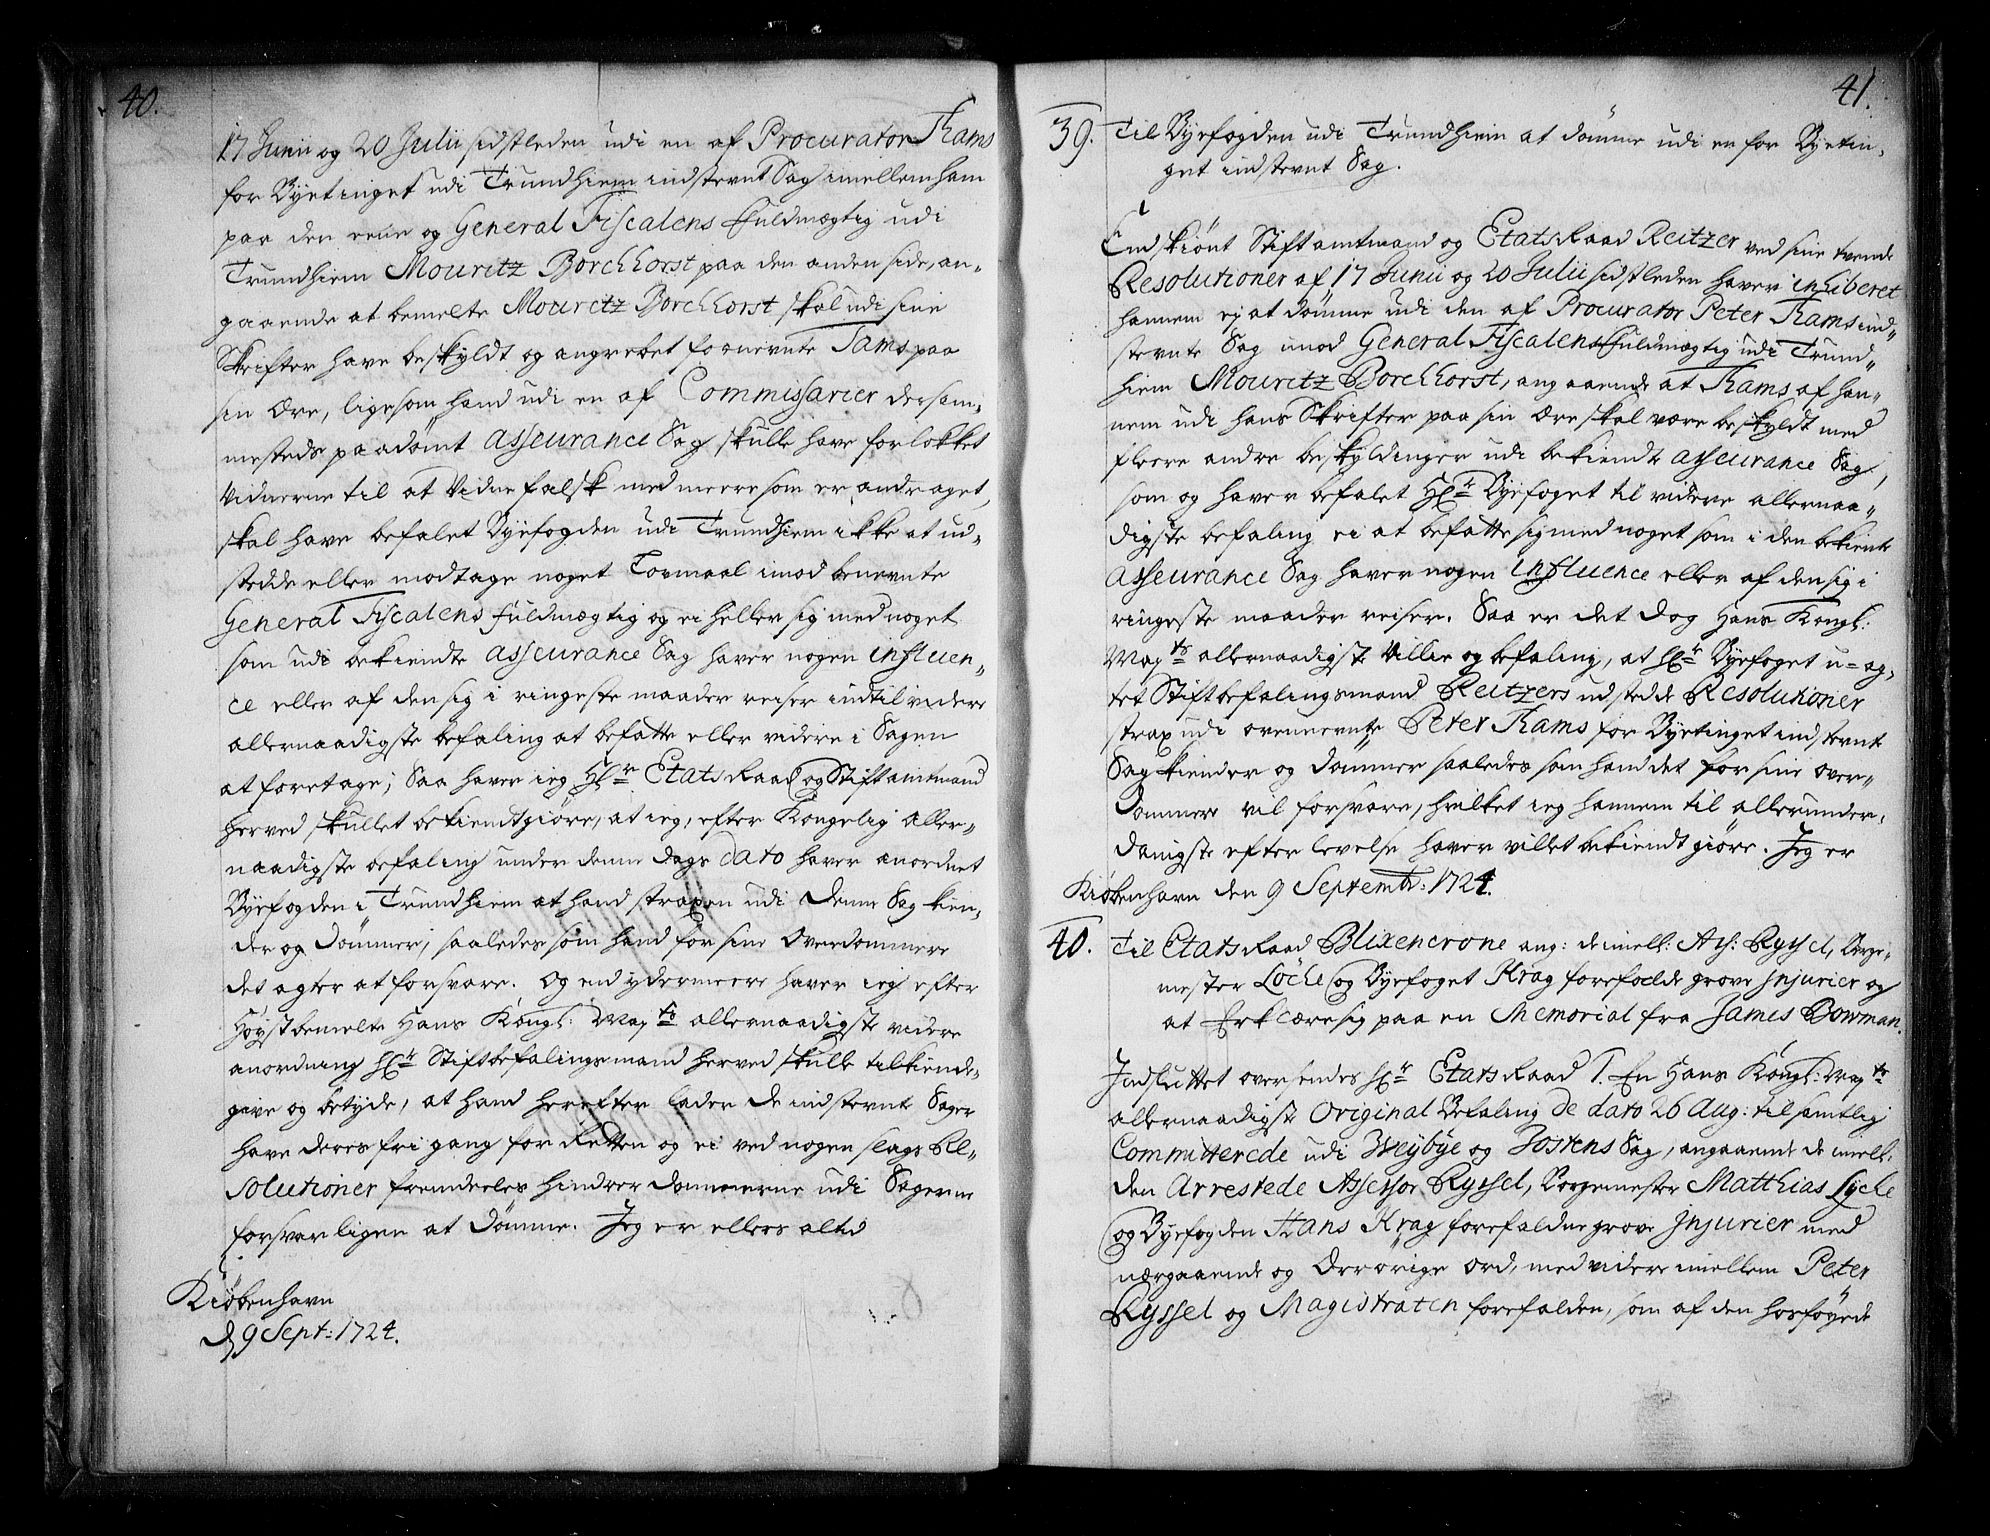 40.
17 Junii og 20 Julii sidstleden udi en af Procurator Thams
for Byetinget udi Trundhiem indstevnt Sag imellem ham
paa den eene og General Fiscalens fuldmægtig udi
Trundhiem Mouritz Borchhorst paa den anden side, an-
gaaende at bemelte Mouritz Borchhorst skal udi sine
Skrifter have beskyldt og angrebet fornevnte Tams paa
sin Ære, ligesom hand udi en af Commissarier dersam-
mesteds paadømt asseurance Sag skulle have forlokket
Vidnerne til at Vidne falsk med meere som er andraget,
skal have befalet Byefogden udi Trundhiem ikke at ud-
stedde eller modtage noget Tovmaal imod benevnte
General Fiscalens fuldmægtig og ei heller sig med noget
som udi bekiendte asseurance Sag haver nogen influen-
ce eller af den sig i ringeste maader reiser indtil videre
allernaadigste befaling at befatte eller videre i Sagen
at foretage; Saa haver ieg Hr Etats Raad og Stiftamtmand
herved skullet bekiendtgiøre, at ieg, efter Kongelig Aller-
naadigste befaling under denne Dags dato haver anordnet
Byefogden i Trundhiem at hand strax en udi denne Sag kien-
der og dømmer, saaledes som hand for sine Overdommere
det agter at forsvare. Og end ydermeere haver ieg efter
Høystbemelte Hans Kongl: Mayts allernaadigste videre
anordning Hr Stiftbefalingsmand herved skulle tilkiende-
give og betyde, at hand herefter lader de indstevnte Sager
have deres fri gang for Retten og ei ved nogen slags Re-
solutioner fremdeeles hindrer dommerne udi Sagerne
forsvarligen at dømme. Jeg er ellers altid
Kiøbenhavn
d 9 Sept: 1724.
41.
39. Til Byefogden udi Trundhiem at dømme udi en for Byetin-
get indstevnt Sag.
Endskiønt Stiftamtmand og Etats Raad Reitzer ved sine tvende
Resolutioner af 17 Junii og 20 Julii sidstleden haver inhiberet
hannem ej at dømme udi den af Procurator Peter Thams ind-
stevnte Sag imod General Fiscalens fuldmægtig udi Trund-
hiem Mouritz Borchhorst, angaaende at Thams af han-
nem udi hans Skrifter paa sin Ære skal være beskyldt med
fleere andre beskyldinger udi bekiendte asseurance Sag,
som og haver befalet Hr Byefoget til videre allernaa-
digste befaling ei at befatte sig med noget som i den bekiente
asseurance Sag haver nogen influence eller af den sig i
ringeste maader reiser. Saa er det dog Hans Kongl:
Mayts allernaadigste Villie og befaling, at Hr Byefoget u-ag-
tet Stiftbefalingsmand Reitzers udstedde Resolutioner
strax udi ovennevnte Peter Thams for Byetinget indstevnte
Sag kiender og dømmer saaledes som hand det for sine over-
dommere vil forsvare, hvilket ieg hannem til allerunder-
danigste efterlevelse haver villet bekiendt giøre. Jeg er
Kiøbenhavn den 9 Septembr: 1724.
40. Til Etats Raad Blixencrone ang: de imell: Ass: Ryssel, Borge-
mester Löche og Byefoget Krag forefaldte grove Injurier og
at Erklære sig paa en Memorial fra James Bowman.
Indsluttet oversendes Hr Etats Raad T. En Hans Kongl: Mayts
allernaadigste Original Befaling de dato 26 Aug: til samtlig
Committerede udi Weybye og Jostens Sag, angaaende de imell:
den Arrestede Assessor Ryssel, Borgemester Matthias Lyche
og Byefogden Hans Krag forefaldne grove Injurier med
nærgaaende og Ærrørige Ord, med videre imellem Peter
Ryssel og Magistraten forefalden, som af den hosføyede